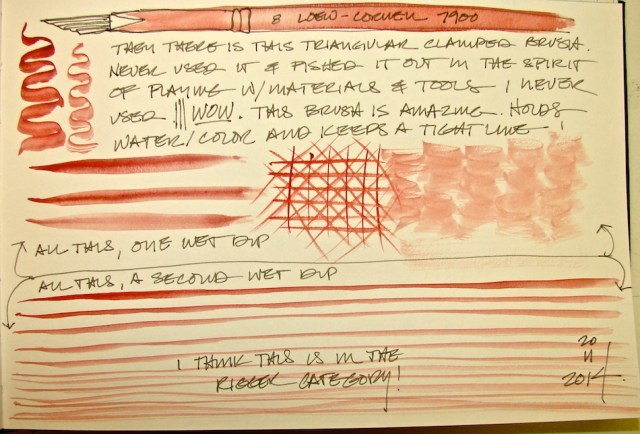 8 LOEW-CORNELL 7900
THEN THERE IS THIS TRIANGULAR CLAMPED BRUSH.
NEVER USED IT & FISHED IT OUT IN THE SPIRIT
OF PLAYING W/MATERIALS & TOOLS I NEVER
USED WOW. THIS BRUSH IS AMAZING. HOLDS
WATER/COLOR AND KEEPS A TIGHT LINE!
ALL THIS, ONE WET DIP
ALL THIS, A SECOND WET DIP
I THINK THIS IS IN THE
RIGGER CATEGORY!
20
11
2014